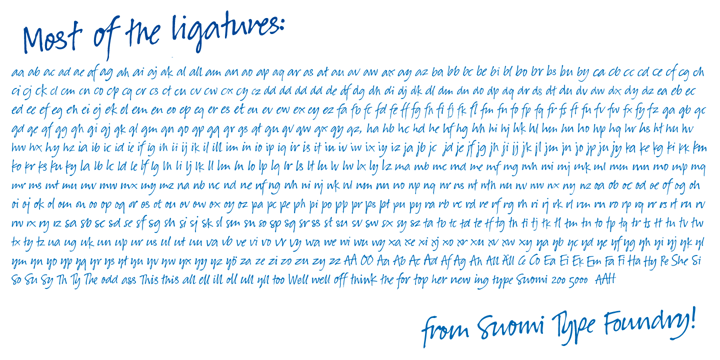 Most of the ligatures:
aa ab ac ad ae af ag ah ai aj ak al all am an ao ap aq ar as at au av aw ax ay az ba bb bc be bi bl bo br bs bu by ca cb cc cd ce cf cg ch
ci cj ck cl cm cn co cp cq cr cs ct cu cv cw cx cy cz dd dd dd dd de df dg dh di dj dk dl dm dn do dp dq dr ds dt du dv dw dx dy dz ea eb ec
ed ee ef eg eh ei ej ek el em en eo ep eq er es et eu ev ew ex ey ez fa fb fc fd fe ff fg fh fi fj fk fl fm fn fo fp fq fr fs ft fu fv fw fx fy fz ga gb gc
gd ge gf gg gh gi gj gk gl gm gn go gp gq gr gs gt gu gv gw gx gy gz, ha hb hc hd he hf hg hh hi hj hk hl hm hn ho hp hq hr hs ht hu hv
hw hx hy hz ia ib ic id ie if ig ih ii ij ik il ill im in io ip iq ir is it iu iv iw ix iy iz ja jb jc jd je jf jg jh ji jj jk jl jm jn jo jp jn jy ka ke kg ki kk km
ko kr ks ku ky la lb lc ld le lf lg lh li lj lk ll lm ln lo lp lq lr ls lt lu lv lw lx ly lz ma mb mc md me mf mg mh mi mj mk ml mm mn mo mp mq
mr ms mt mu mv mw mx my mz na nb nc nd ne nf ng nh ni nj nk nl nm nn no np nq nr ns nt nth nu nv nw nx ny nz oa ob oc od oe of og oh
oi oj ok ol om on oo op oq or os ot ou ov ow ox oy oz pa pc pe ph pi po pp pr ps pt pu py ra rb rc rd re rf rg rh ri rj rk rl rm rn ro rp rq rr rs rt ru rv
rw rx ry rz sa sb sc sd se sf sg sh si sj sk sl sm sn so sp sq sr ss st su sv sw sx sy sz ta tb tc td te tf tg th ti tj tk tl tm tn to tp tq tr ts tt tu tv tw
tx ty tz ua ug uk un up ur us ul ut uu va vb ve vi vo vr vy wa we wi wu wy xa xe xi xj xo xr xu xv xw xy ya yb yc yd ye yf yg yh yi yj yk yl
ym yn yo yp yq yr ys yt yu yv yw yx yy yz yö za ze zi zo zu zy zz AA OO Aa Ab Ac Ad Af Ag Ah All Äll G Co Ea Ei Ek Em Fa Fi Ha Hy Re She Si
So Su Sy Th Ty The odd ass This this all ell ill oll ull yll too Well well off think the for top her new ing type Suomi 200 5000 AAH
from Suomi Type Foundry!